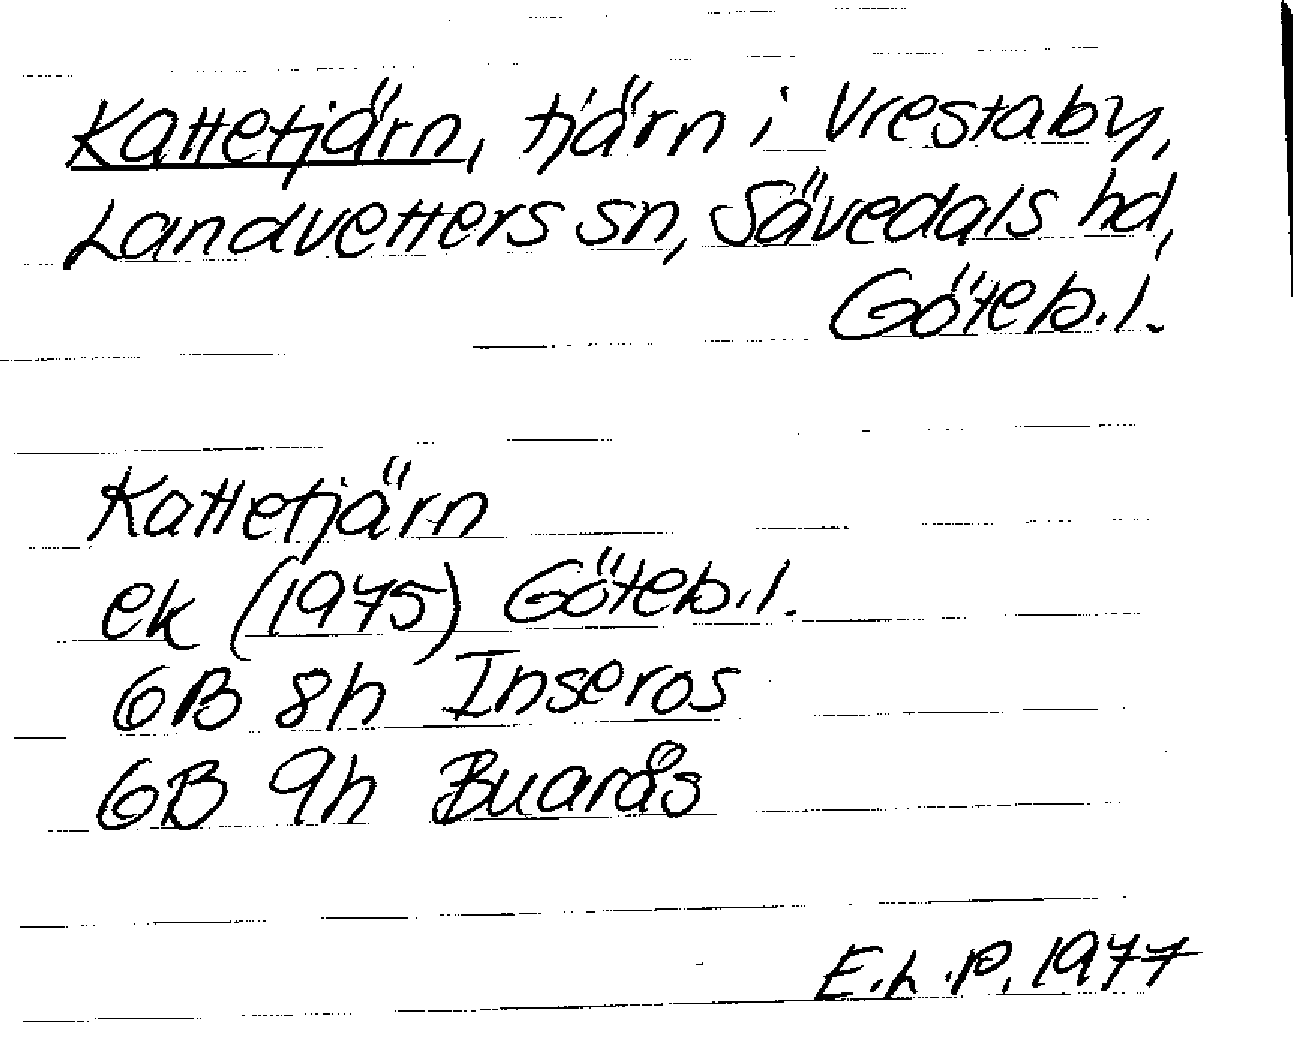 Kattetjärn, tjärn i Vrestaby,
Landvetters sn, Sävedals hd,
Göteb.l.
Kattetjärn
ek (1975) Göteb.l.
6B 8h Inseros
6B 9h Buarås
E.L.P. 1977